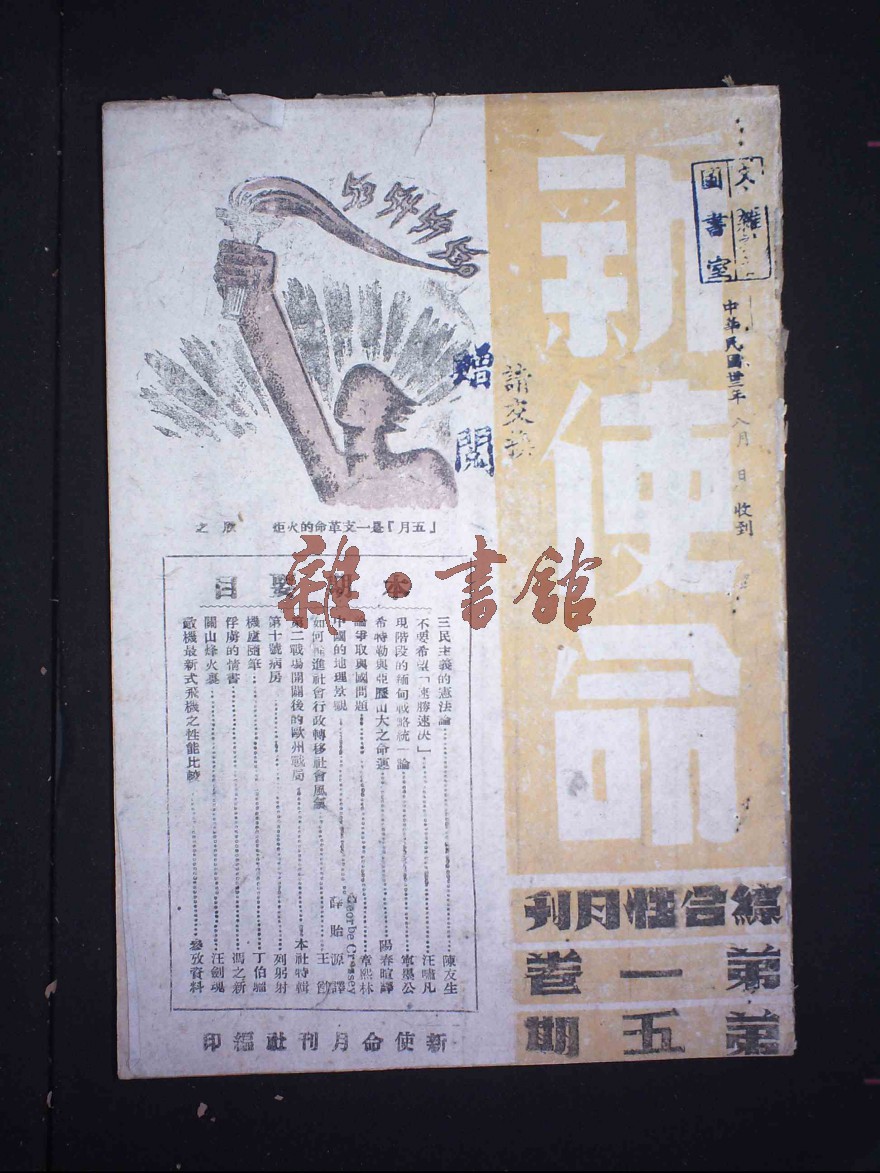 新使命
綜合性月刊
第一卷
第五期
圖書室
中華民國卅三年 八月 日 收到
請交換
贈閱
『五月』是一支革命的火炬
本期要目
三民主義的憲法論 陳友生
不要希望「速勝速決」 汪嘯凡
現階段的緬甸戰略統一論 寧墨公
希特勒與亞歷山大之命運 陽春暄譯
論爭取與國問題 章熙林
中國的地理景觀 Georbe Cressey 薛貽源譯
如何 進社會行政轉移社會風氣 王
第二戰場開闢後的歐州戰局 本社特輯
第十號病房 列躬射
機廬隨筆 丁伯騮
俘虜的情書 馮之新
關山烽火裏 汪劍魂
敵機最新式飛機之性能比較 參攷資料
新使命月刊社編印
雜·書館